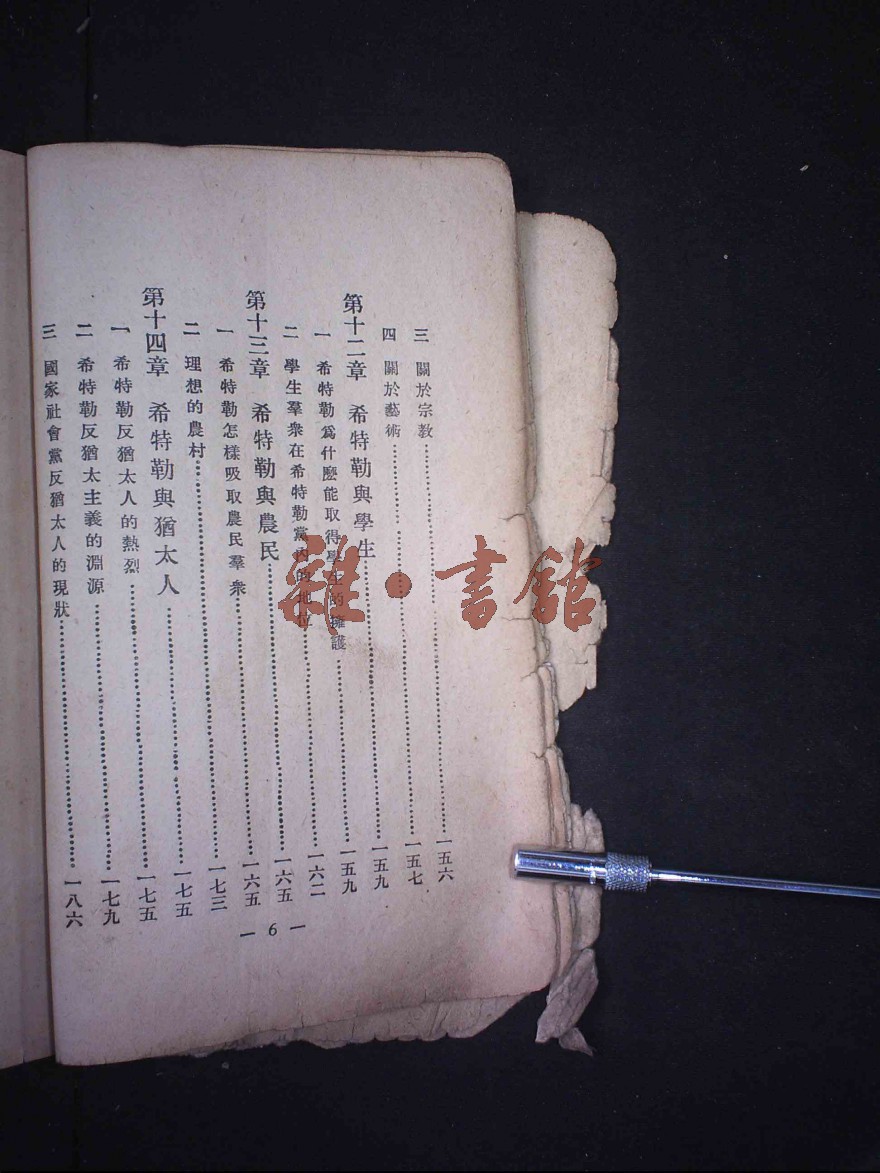 三　關於宗教……一五六
四　關於藝術……一五七
第十二章　希特勒與學生……一五九
一　希特勒爲什麽能取得學生的擁護……一五九
二　學生羣衆在希特勒黨內的地位……一六二
第十三章　希特勒與農民……一六五
一　希特勒怎樣吸取農民羣衆……一六五
二　理想的農村……一七三
第十四章　希特勒與猶太人……一七五
一　希特勒反猶太人的熱烈……一七五
二　希特勒反猶太主義的淵源……一七九
三　國家社會黨反猶太人的現狀……一八六
— 6 —
雜·書館